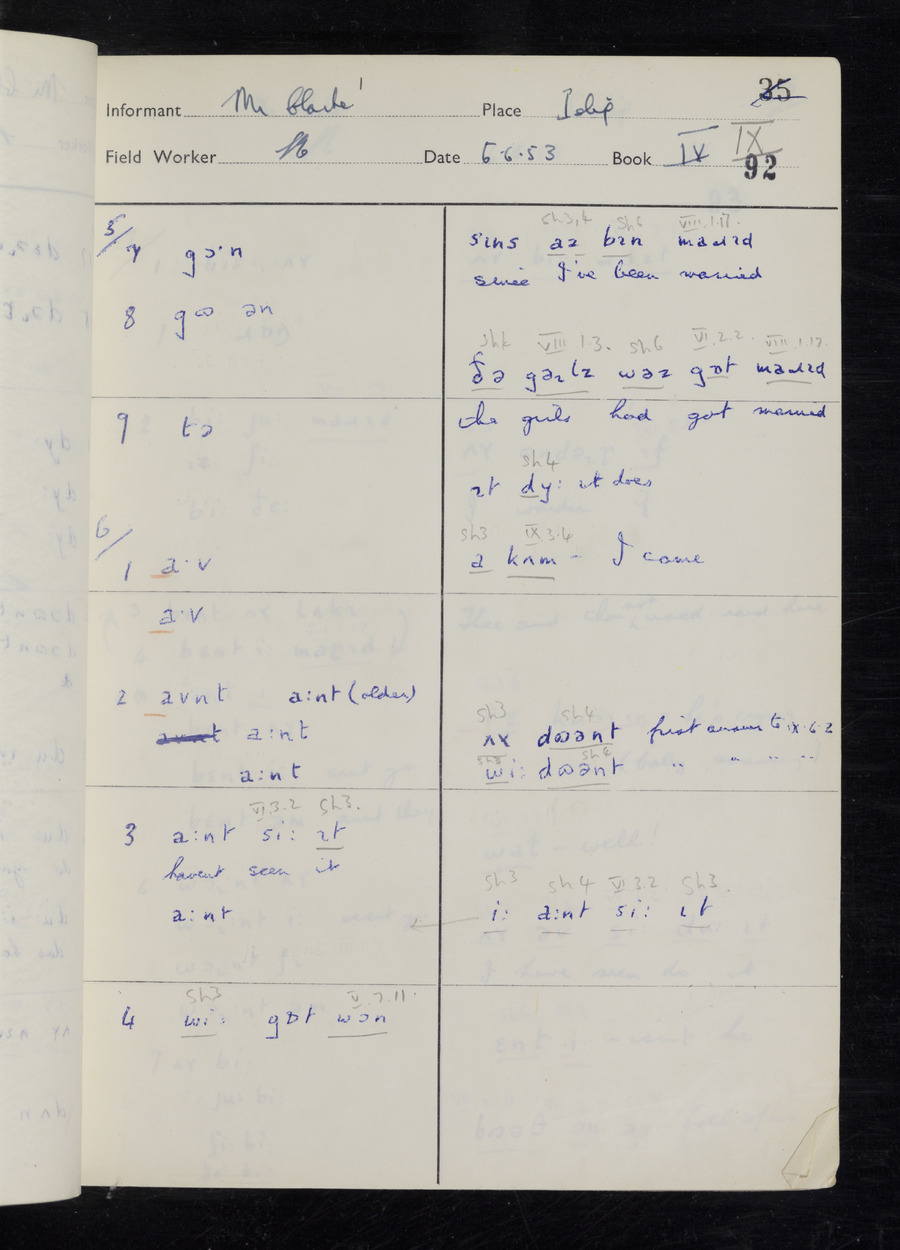 35
Informant Mr Clarke Place
Field Worker Date 6·6·53 Book IV IX
92
5/7 gɔ·n
8 gɷ ən
9 tə
6/1 a·v
a·v
2 avnt a:nt (older)
a:nt
a:nt
VI.3.2 sh3.
3 a:nt si: ɪt
havent seen it
a:nt
sh3 V.7.11.
4 wi: gɒt wɔn
sh3,4 sh6 VIII.1.17.
sɪns az bɪn maɹɪd
since I've been married
VIII 1.3. sh6 VI.2.2. VIII.1.17.
ðə gəɹlz wəz gɒt maɹɪd
the girls had got married
sh4
ɪt dy: it does
sh3 IX.3.4
a kʌm – I come
sh3 sh4
ʌɪ dɷənt first answer to IX.6.2
sh3 sh4
wi: dɷənt " " " "
sh3 sh4 VI 3.2 sh3.
i: a:nt si: ɪt